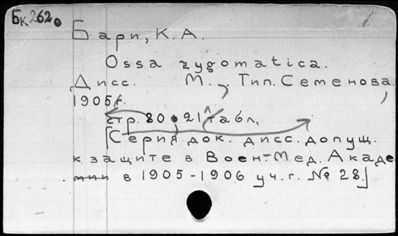 Бк262.
Бари, К.А.
Ossa zygomatica.
Дисс. М., Тип. Семенова,
1905г.
стр. 80 • 21 табл.
[Серия док. дисс. допущ.
к защите в Воен-Мед. Акаде
мии в 1905-1906 уч.г. № 28]